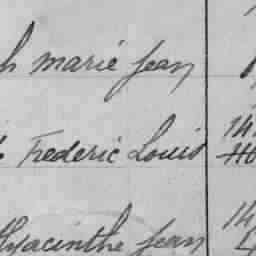 h marie Jean
Frederic Louis 14
Hyacinthe Jean 14